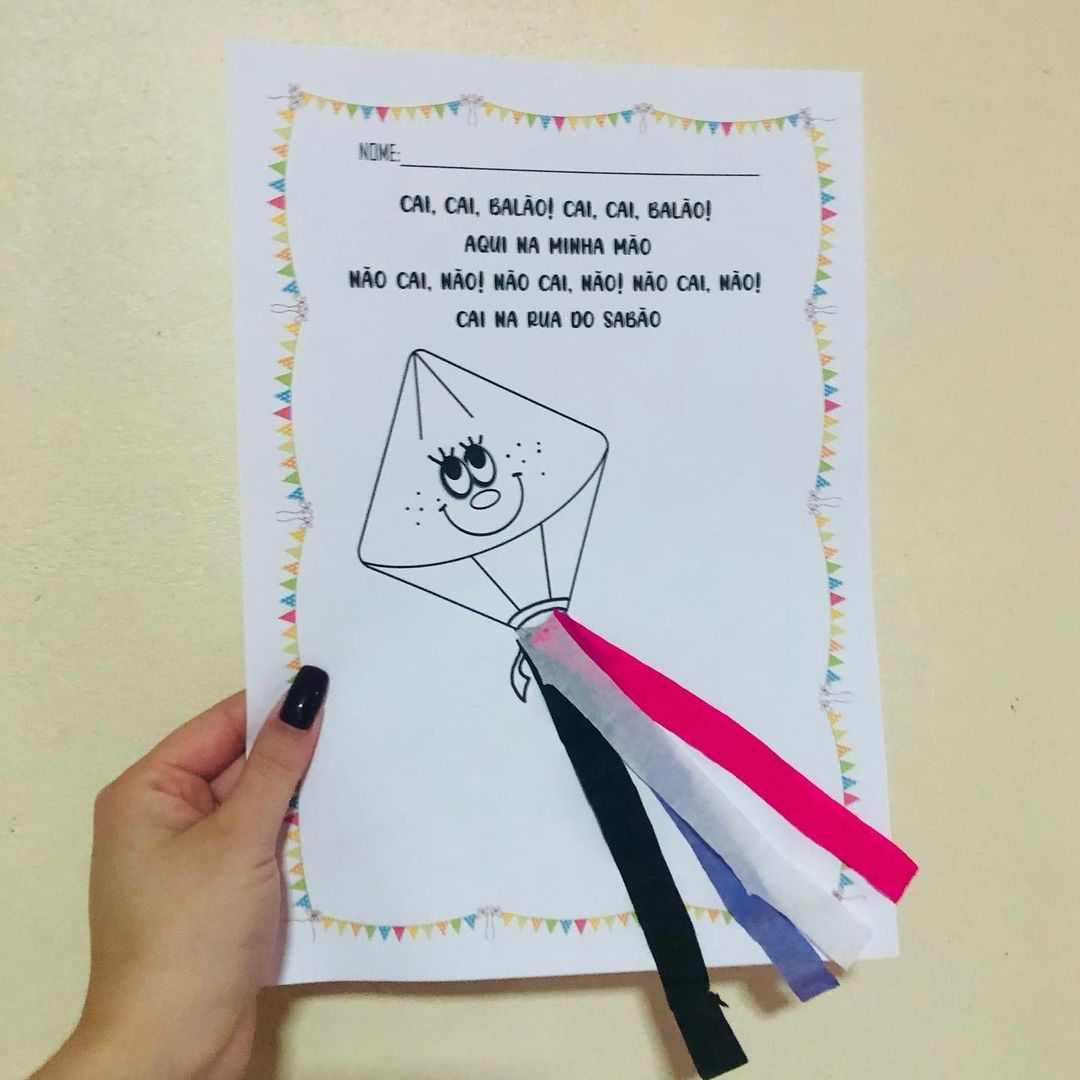 NOME:
CAI, CAI, BALÃO! CAI, CAI, BALÃO!
AQUI NA MINHA MÃO
NÃO CAI, NÃO! NÃO CAI, NÃO! NÃO CAI, NÃO!
CAI NA RUA DO SABÃO